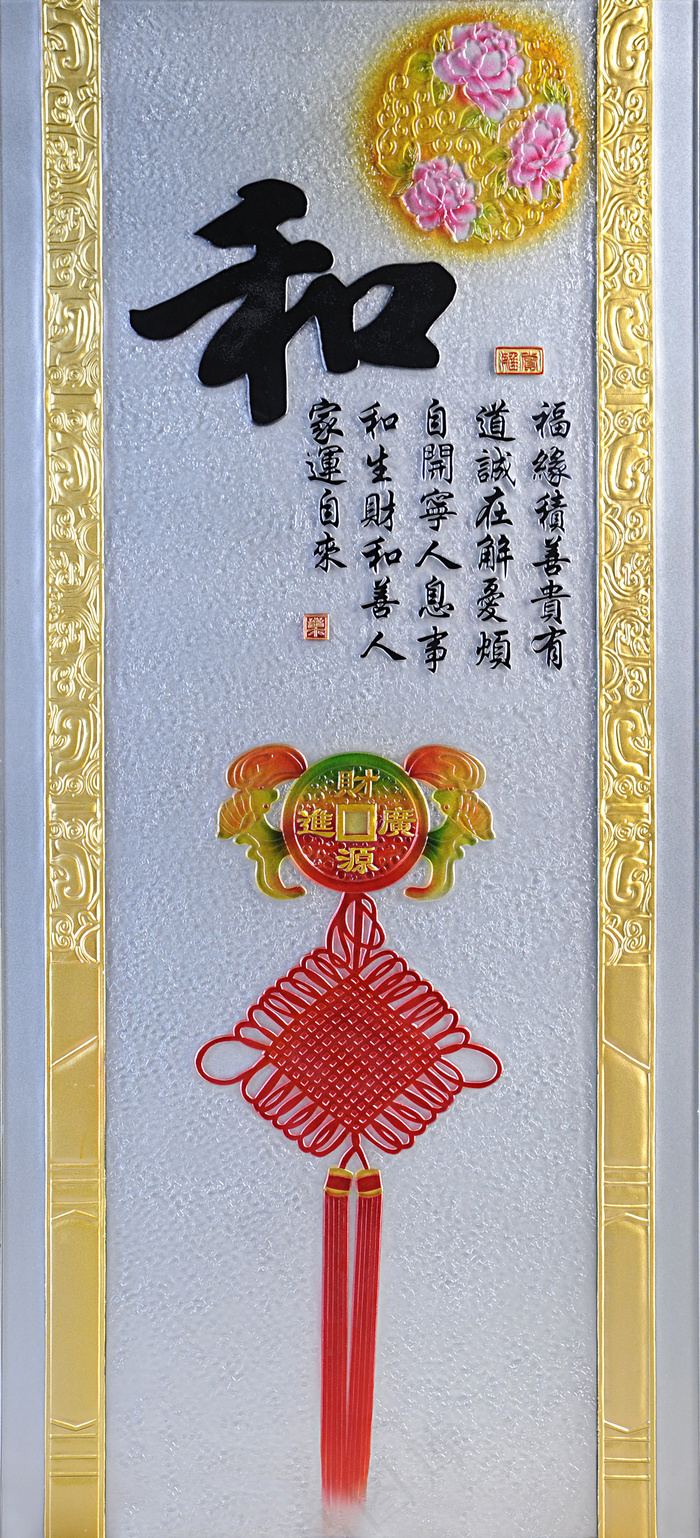 和
福緣積善貴有
道誠在解憂煩
自開寧人息事
和生財和善人
家運自來
財源廣進